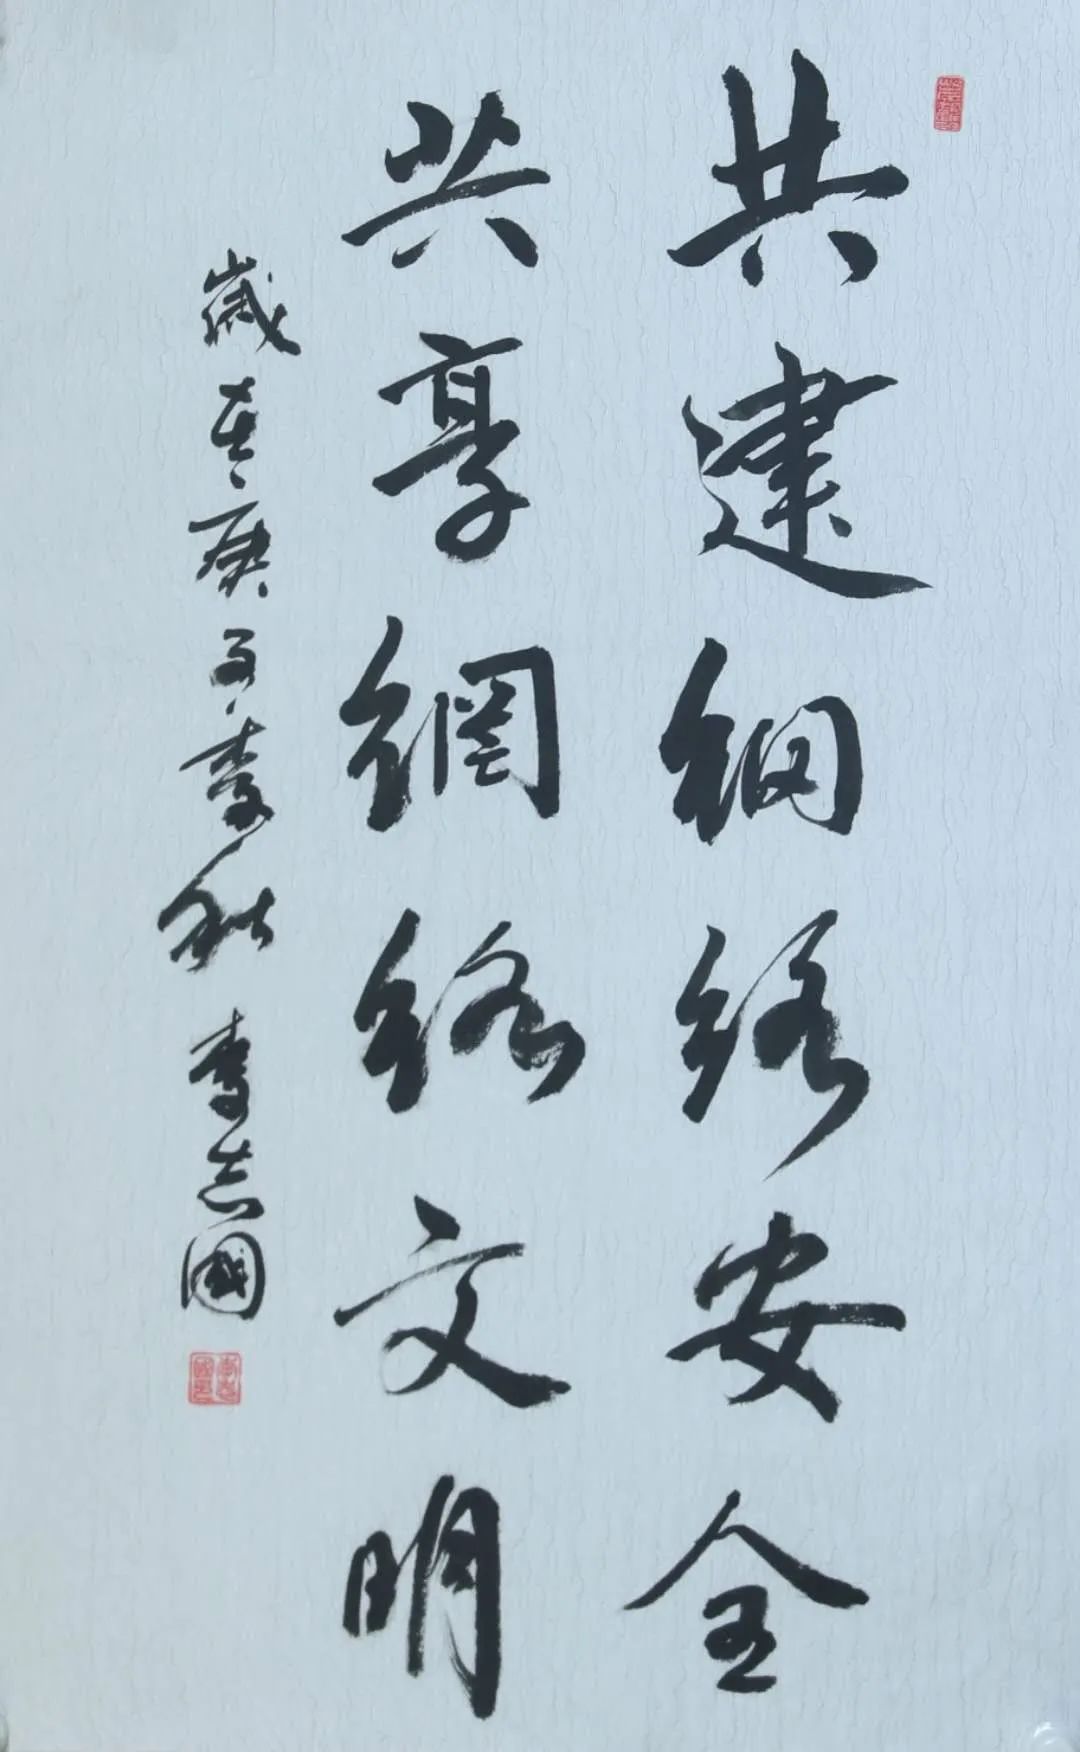 共建網絡安全
共享網絡文明
歲在庚子季秋 李志國